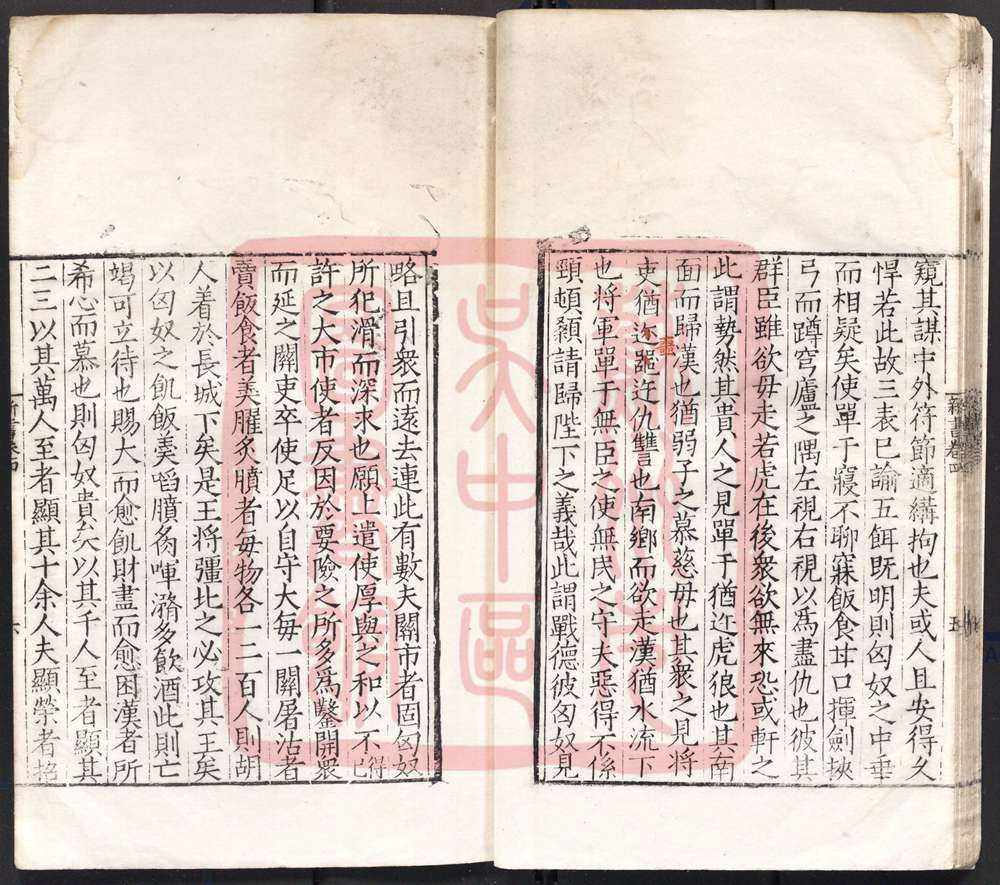 窺其謀中外符節適緍拘也夫或人且安得久
悍若此故三表已諭五餌既明則匈奴之中乖
而相疑矣使單于寢不聊寐飯食甘口揮劍挾
弓而蹲穹廬之隅左視右視以爲盡仇也彼其
群臣雖欲毋走若虎在後衆欲無來恐或軒之
此謂勢然其貴人之見單于猶迕虎狼也其南
面而歸漢也猶弱子之慕慈母也其衆之見將
吏猶迯噩迕仇讐也南鄉而欲走漢猶水流下
也將軍單于無臣之使無民之守夫惡得不係
頸頓顙請歸陛下之義哉此謂戰德彼匈奴見
新書卷四
五
略且引衆而遠去連此有數夫關市者固匈奴
所犯滑而深求也願上遣使厚與之和以不得已
許之大市使者反因於要險之所多爲鑿開衆
而延之關吏卒使足以自守大每一關屠沽者
賣飯食者羙臛炙膹者每物各一二百人則胡
人着於長城下矣是王將彊北之必攻其王矣
以匈奴之飢飯羙啗膹炙啤潃多飲酒此則亡
竭可立待也賜大而愈飢財盡而愈困漢者所
希心而慕也則匈奴貴矣以其千人至者顯其
二三以其萬人至者顯其十余人夫顯榮者招